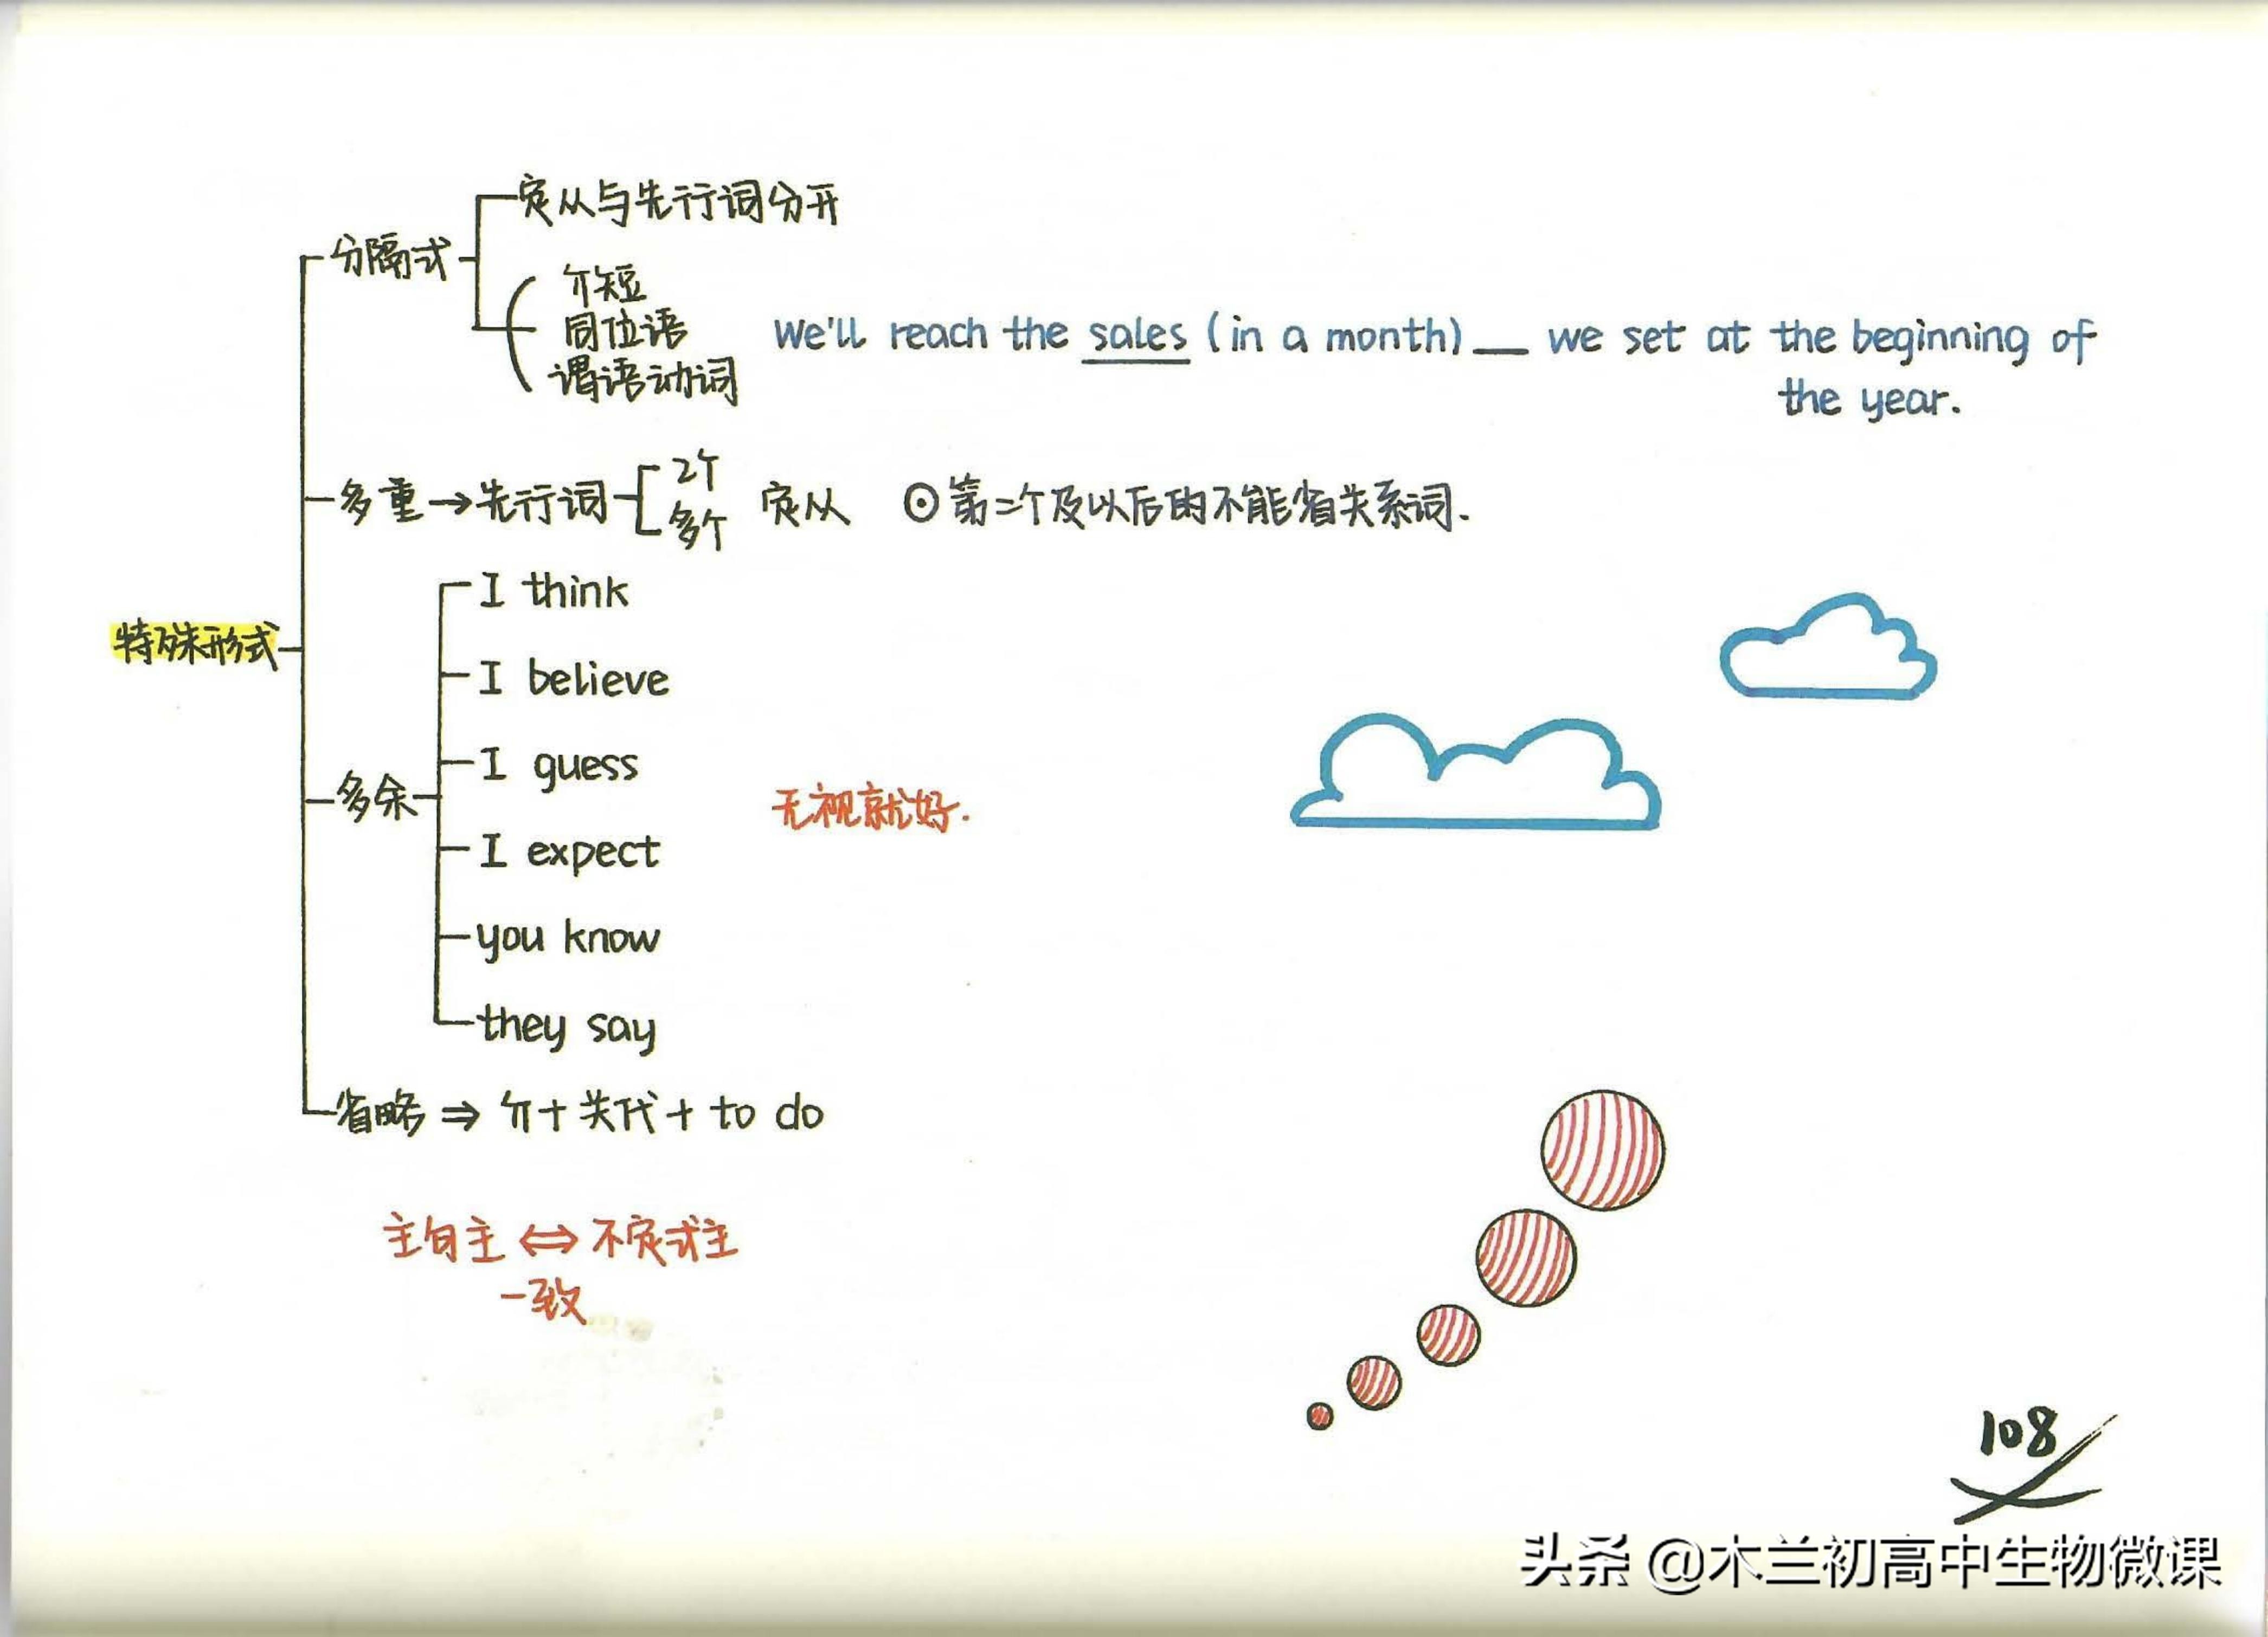 定从与先行词分开
分隔式
介短
同位语
谓语动词
we'll reach the sales (in a month) __ we set at the beginning of
the year.
多重→先行词
2个
多个
定从 ⊙第二个及以后的不能省关系词.
I think
特殊形式
I believe
I guess
多余
无视就好.
I expect
you know
they say
省略 ⇒ 介+关代+to do
主句主 ⇔ 不定式主
一致
108
头条 @木兰初高中生物微课